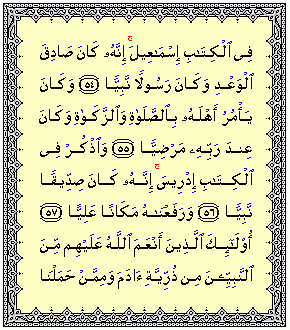 فِى ٱلْكِتَٰبِ إِسْمَٰعِيلَ ۚ إِنَّهُۥ كَانَ صَادِقَ
ٱلْوَعْدِ وَكَانَ رَسُولًا نَّبِيًّا ٥٤ وَكَانَ
يَأْمُرُ أَهْلَهُۥ بِٱلصَّلَوٰةِ وَٱلزَّكَوٰةِ وَكَانَ
عِندَ رَبِّهِۦ مَرْضِيًّا ٥٥ وَٱذْكُرْ فِى
ٱلْكِتَٰبِ إِدْرِيسَ ۚ إِنَّهُۥ كَانَ صِدِّيقًا
نَّبِيًّا ٥٦ وَرَفَعْنَٰهُ مَكَانًا عَلِيًّا ٥٧
أُو۟لَٰٓئِكَ ٱلَّذِينَ أَنْعَمَ ٱللَّهُ عَلَيْهِم مِّنَ
ٱلنَّبِيِّـۧنَ مِن ذُرِّيَّةِ ءَادَمَ وَمِمَّنْ حَمَلْنَا